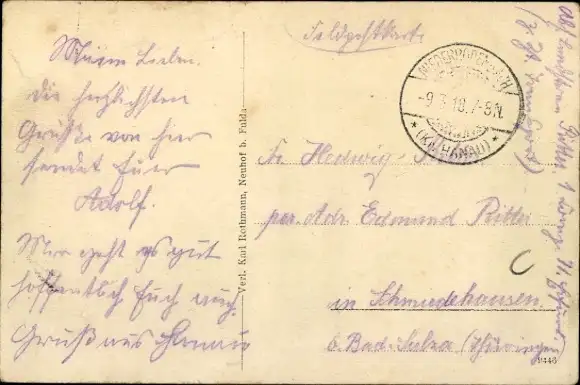 Meine Lieben.
Die herzlichsten
Grüße von hier
sendet Euer
Adolf.
Mir geht es gut
hoffentlich Euch auch.
Gruß aus Hanau
Verl. Karl Rothmann, Neuhof b. Fulda
Feldpostkarte
NIEDERRODENBACH
-9.3.18. 7-8N.
* (KR. HANAU) *
Fr. Hedwig
per. Adr. Edmund Ritter
in Schmiedehausen
b. Bad-Sulza (Thüringen)
Ritter. 1